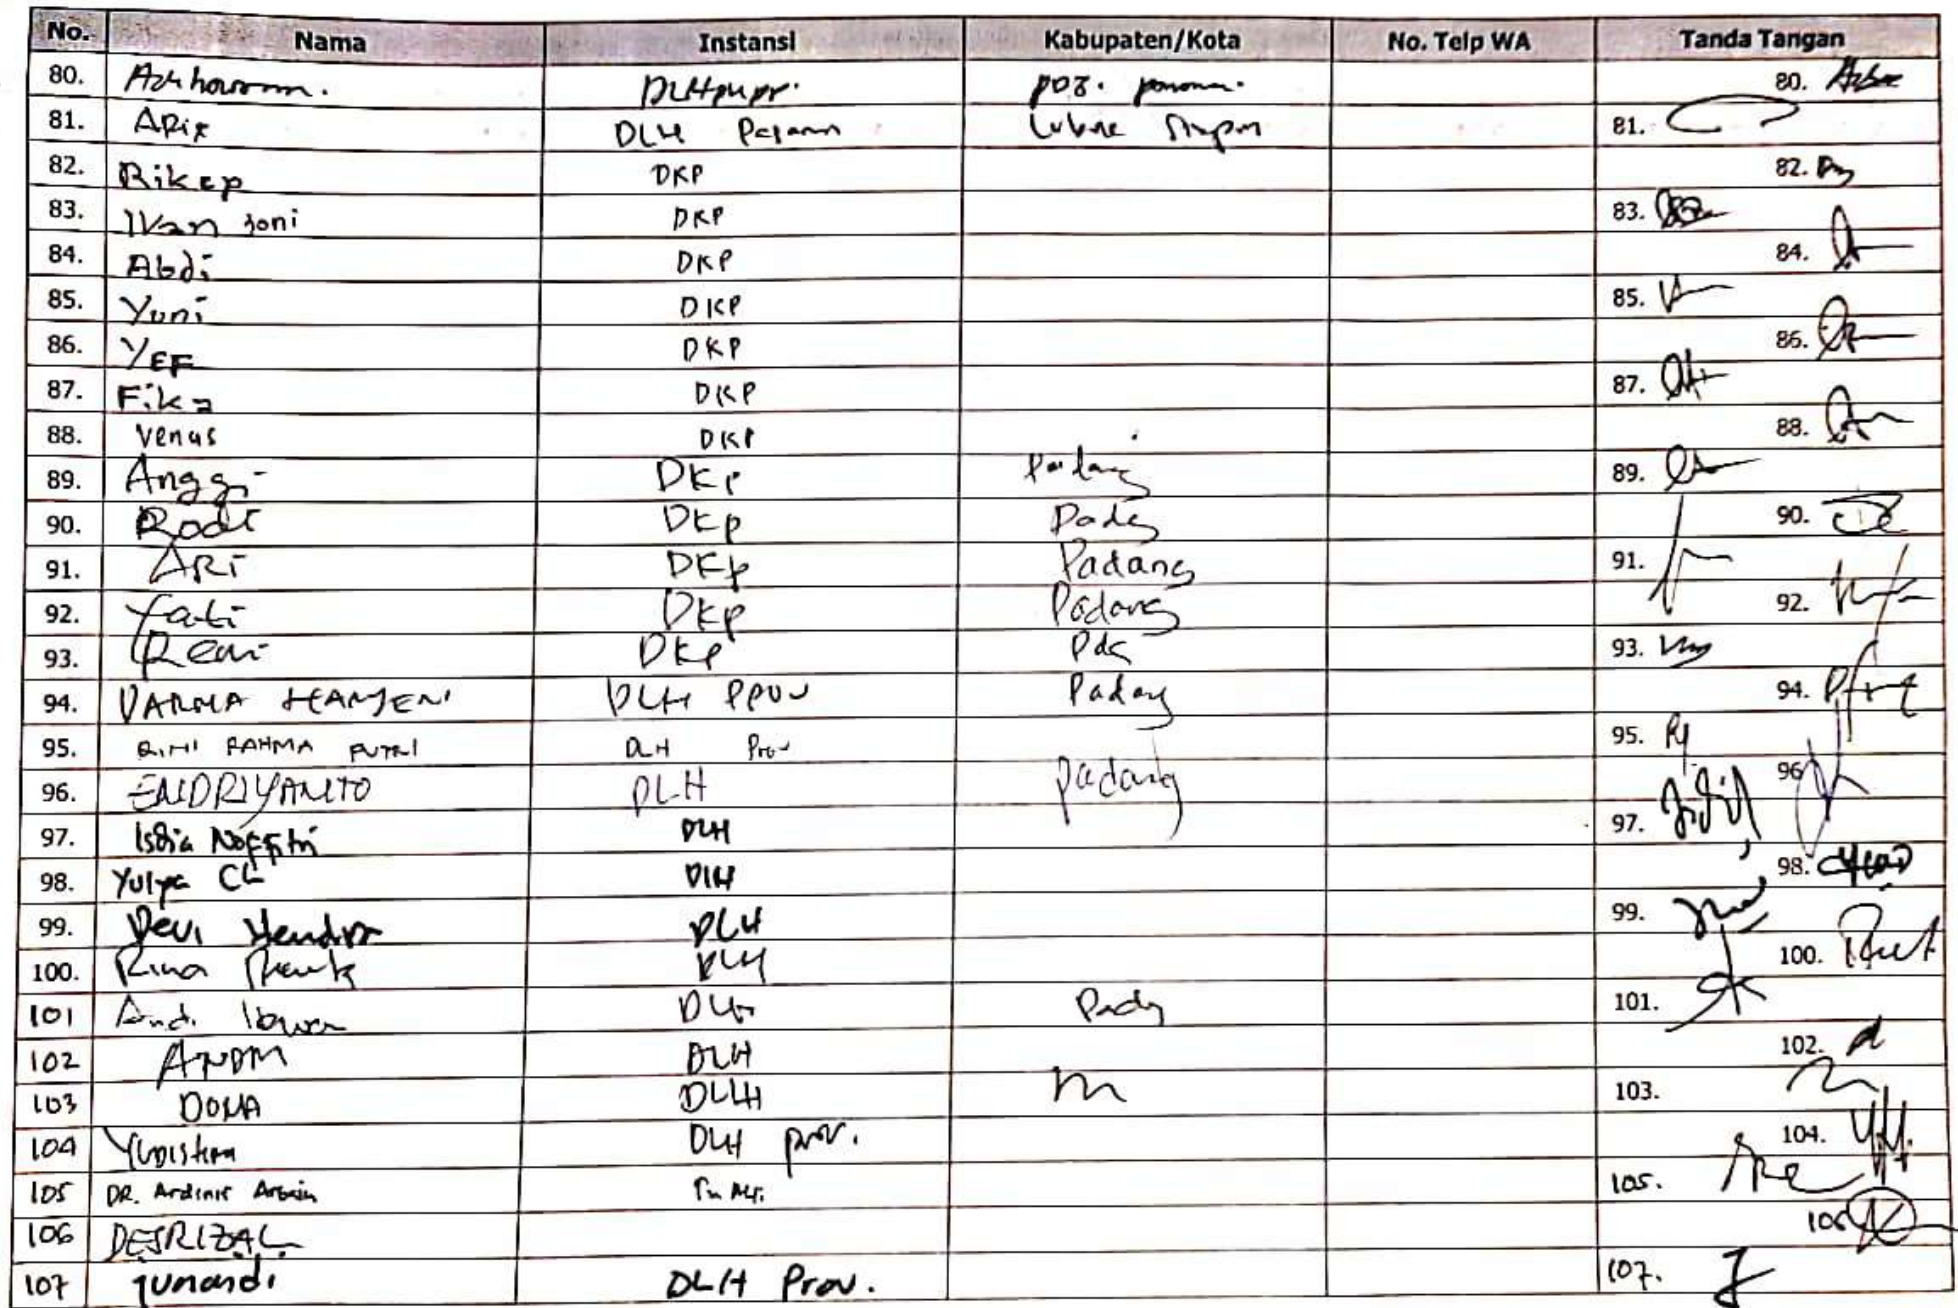 No. Nama Instansi Kabupaten/Kota No. Telp WA Tanda Tangan
80. DLHpupr. 80.
81. Arif DLH 81.
82. Rikep DKP 82.
83. Ivan Joni DKP 83.
84. Abdi DKP 84.
85. Yuni DKP 85.
86. YEF DKP 86.
87. Fika DKP 87.
88. Venus DKP 88.
89. Anggi DKP Padang 89.
90. Rodi DKp Padg 90.
91. ARi DKp Padang 91.
92. Yati DKp Padang 92.
93. Reni DKP Pdg 93.
94. DARMA HANJENI DLH Padang 94.
95. RIMI RAHMA PUTRI DLH Prov 95.
96. ENDRIYANTO DLH padang 96
97. DLH 97.
98. Yulya CL DLH 98.
99. Devi Hendra DLH 99.
100. Rina DLH 100.
101 Andi DLH Padg 101.
102 DLH 102.
103 DONA DLH 103.
104 Yudistira DLH prov. 104.
105 DR. Ardinis Arbain 105.
106 DESRIZAL 106
107 junandi DLH Prov. 107.